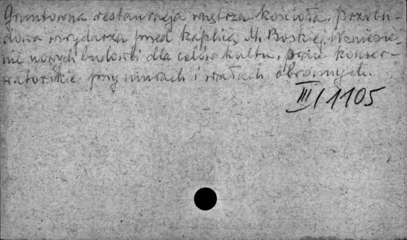 Gruntowna restauracja wnętrza kościoła. Przebu-
dowa korytarza przed kaplicą M. Boskiej. Wzniesie-
nie nowych budowli dla celów kultu, prace konser-
watorskie przy murach i wałach obronnych.
III/1105